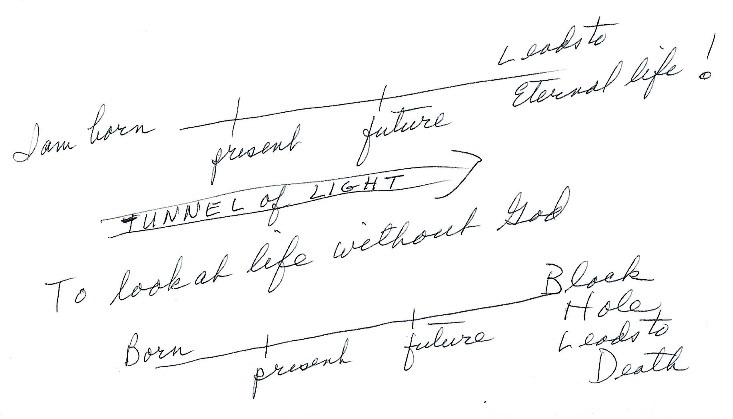 Leads to
I am born present future Eternal life!
TUNNEL of LIGHT
To look at life without God
Born present future Black
Hole
Leads to
Death